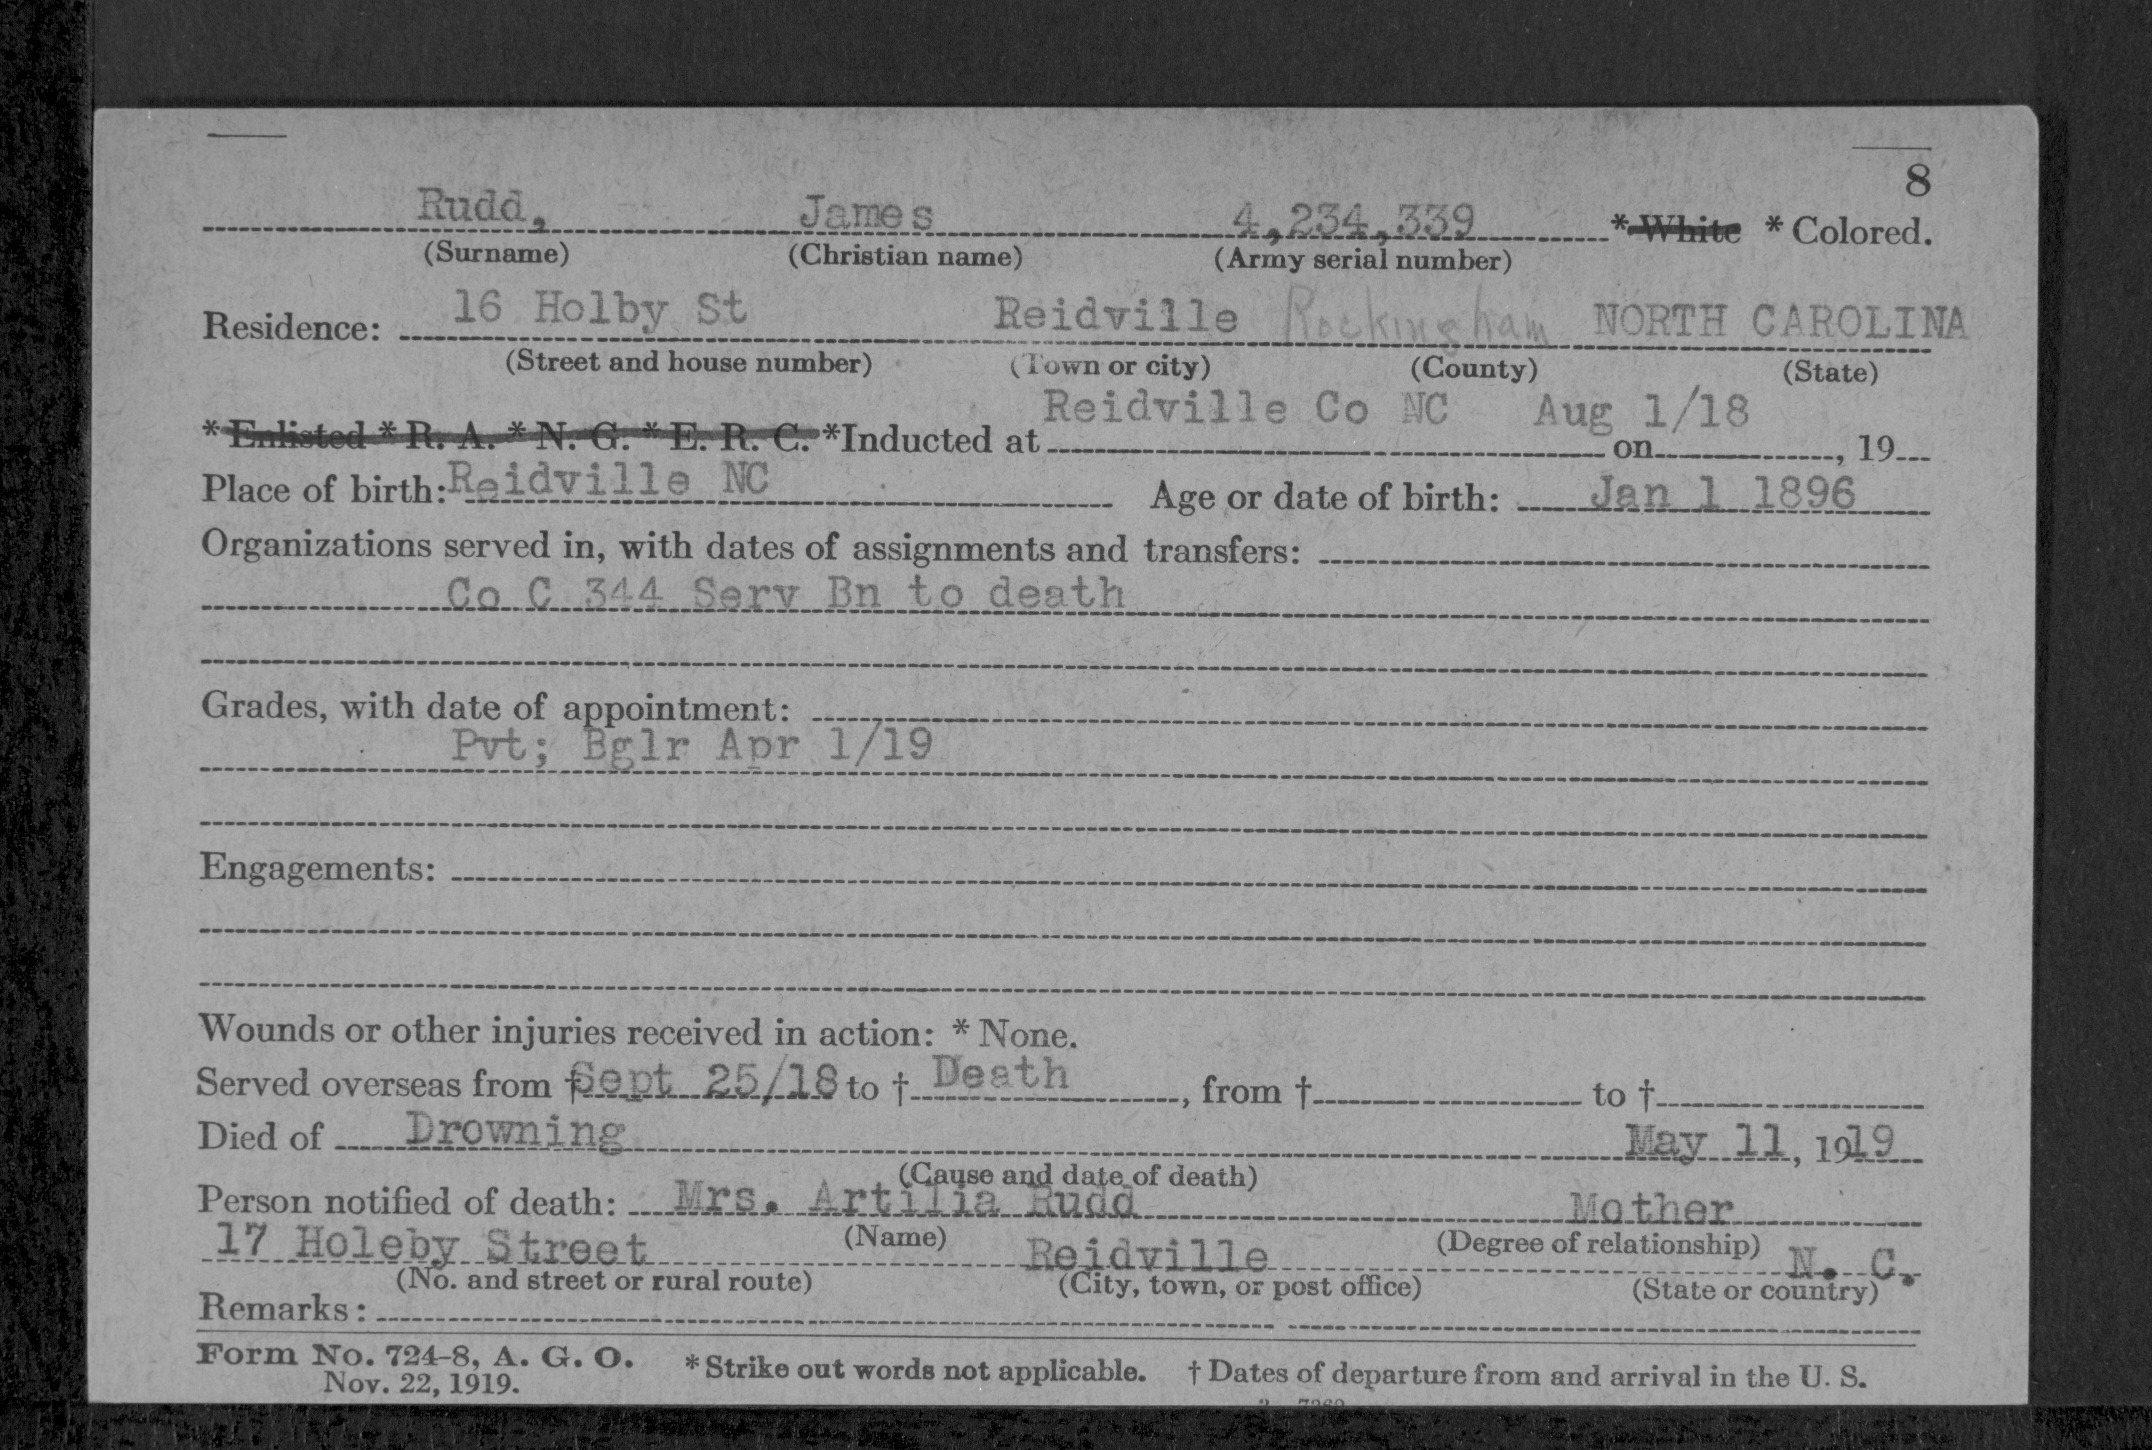 8
Rudd, James 4,234,339 * White * Colored.
(Surname) (Christian name) (Army serial number)
Residence: 16 Holby St Reidville Rockingham NORTH CAROLINA
(Street and house number) (Town or city) (County) (State)
* Enlisted * R. A. * N. G. * E. R. C. * Inducted at Reidville Co NC on Aug 1/18, 19
Place of birth: Reidville NC Age or date of birth: Jan 1 1896
Organizations served in, with dates of assignments and transfers:
Co C 344 Serv Bn to death
Grades, with date of appointment:
Pvt; Bglr Apr 1/19
Engagements:
Wounds or other injuries received in action: * None.
Served overseas from † Sept 25/18 to † Death, from † to †
Died of Drowning May 11, 1919
(Cause and date of death)
Person notified of death: Mrs. Artilia Rudd Mother
(Name) (Degree of relationship)
17 Holeby Street Reidville N. C.
(No. and street or rural route) (City, town, or post office) (State or country)
Remarks:
Form No. 724-8, A. G. O. * Strike out words not applicable. † Dates of departure from and arrival in the U. S.
Nov. 22, 1919.